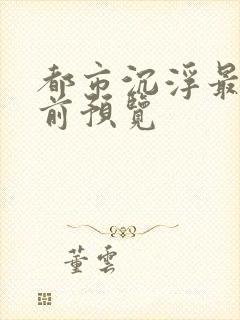 都市沉浮最
前預覽
董雲